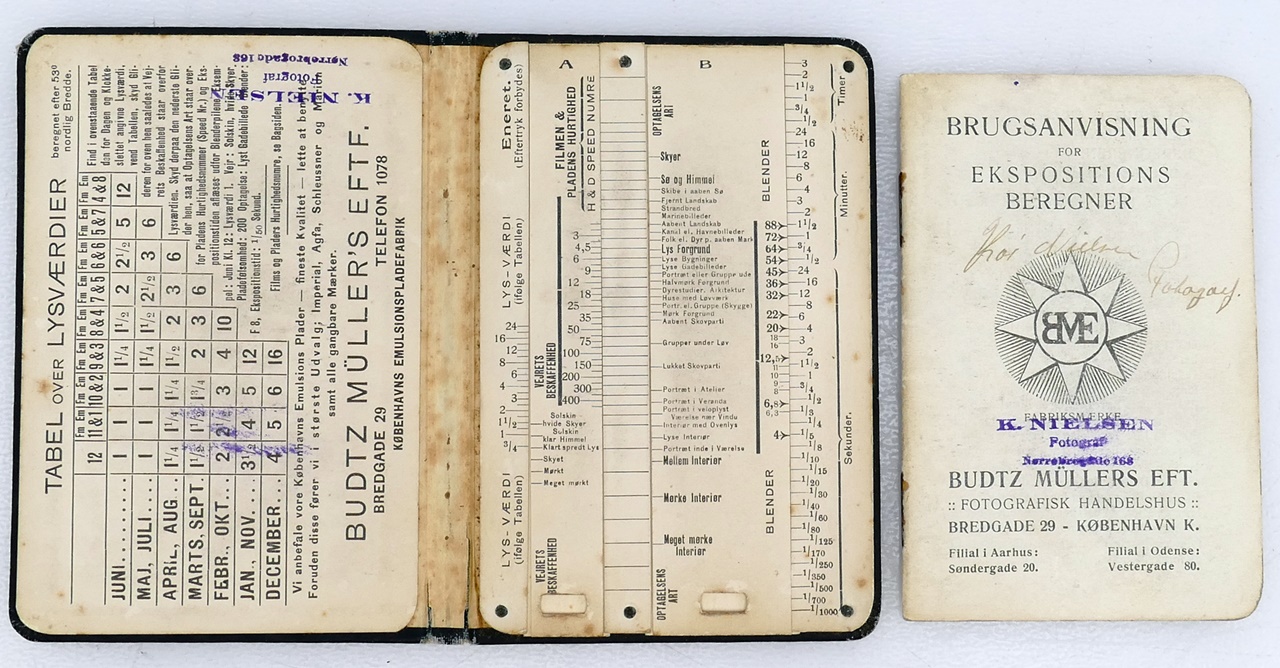 TABEL OVER LYSVÆRDIER
beregnet efter 53º
nordlig Bredde.
Em Em Em Em Em Em Em Em
12 11&1 10&2 9&3 8&4 7&5 6&6 5&7 4&8
JUNI. 1 1 1 1¼ 1½ 2 2½ 5 12
MAJ, JULI. 1 1 1 1¼ 1½ 2½ 3 6
APRIL, AUG. 1¼ 1¼ 1¼ 1½ 2 3 6
MARTS, SEPT. 1½ 1½ 1¾ 2 3 6
FEBR., OKT. 2 2½ 3 4 10
JAN., NOV. 3½ 4 5 12
DECEMBER. 4 5 6 16
Find i ovenstaaende Tabel
den for Dagen og Klokke-
slettet angivne Lysværdi,
vend Tabellen, skyd Gli-
deren for oven hen saaledes at Vej-
rets Beskaffenhed staar overfor
Lysværdien. Skyd derpaa den nederste Gli-
der hen, saa at Optagelsens Art staar over-
for Pladens Hurtighedsnummer (Speed Nr.) og Eks-
positionstiden aflæses udfor Blenderpilene. Eksem-
pel: Juni Kl. 12: Lysværdi 1. Vejr: Solskin, hvide Skyer.
Pladefølsomhed: 200 Optagelse: Lyst Gadebillede Blender:
F 8, Ekspositionstid: 1/50 Sekund.
Films og Pladers Hurtighedsnumre, se Bagsiden.
Vi anbefale vore Københavns Emulsions Plader — fineste Kvalitet — lette at benytte.
Foruden disse fører vi i største Udvalg: Imperial, Agfa, Schleussner og Marion
samt alle gangbare Mærker.
BUDTZ MÜLLER'S EFTF.
BREDGADE 29 TELEFON 1078
KØBENHAVNS EMULSIONSPLADEFABRIK
K. NIELSEN
Fotograf
Nørrebrogade 168
Eneret.
(Eftertryk forbydes)
LYS-VÆRDI
(ifølge Tabellen)
24
16
12
8
6
4
3
2
1½
1
¾
LYS-VÆRDI
(ifølge Tabellen)
A
FILMEN &
PLADENS HURTIGHED
H & D SPEED NUMRE
3
4,5
6
9
12
18
25
35
50
75
100
150
200
300
400
VEJRETS
BESKAFFENHED
Solskin
hvide Skyer
Solskin
klar Himmel
Klart spredt Lys
Skyet
Mørkt
Meget mørkt
VEJRETS
BESKAFFENHED
B
OPTAGELSENS
ART
Skyer
Sø og Himmel
Skibe i aaben Sø
Fjernt Landskab
Strandbred
Marinebilleder
Aabent Landskab
Kanal el. Havnebilleder
Folk el. Dyr p. aaben Mark
Lys Forgrund
Lyse Bygninger
Lyse Gadebilleder
Portræt eller Gruppe ude
Halvmørk Forgrund
Dyrestudier, Arkitektur
Huse med Løvværk
Portr. el. Gruppe (Skygge)
Mørk Forgrund
Aabent Skovparti
Grupper under Løv
Lukket Skovparti
Portræt i Atelier
Portræt i Veranda
Portræt i veloplyst
Værelse nær Vindu
Interiør med Ovenlys
Lyse Interiør
Portræt inde i Værelse
Mellem Interiør
Mørke Interiør
Meget mørke
Interiør
OPTAGELSENS
ART
BLENDER
88
72
64
45
36
32
22
20
18
16
12,5
11
10
9
8
6,8
6,3
4
BLENDER
3
2
1½
1
¾
½
24
16
12
8
6
4
3
2
1½
1
¾
½
24
16
12
8
6
4
3
2
1½
1
¾
½
1/4
1/5
1/8
1/10
1/15
1/20
1/30
1/40
1/60
1/80
1/125
1/170
1/250
1/350
1/500
1/700
1/1000
Timer
Minutter.
Sekunder.
BRUGSANVISNING
FOR
EKSPOSITIONS
BEREGNER
BME
FABRIKSMÆRKE
K. NIELSEN
Fotograf
Nørrebrogade 168
BUDTZ MÜLLERS EFT.
:: FOTOGRAFISK HANDELSHUS ::
BREDGADE 29 - KØBENHAVN K.
Filial i Aarhus:
Søndergade 20.
Filial i Odense:
Vestergade 80.